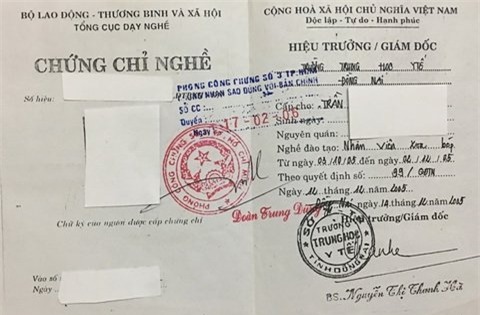 BỘ LAO ĐỘNG - THƯƠNG BINH VÀ XÃ HỘI
TỔNG CỤC DẠY NGHỀ
CHỨNG CHỈ NGHỀ
Số hiệu:
PHÒNG CÔNG CHỨNG SỐ 3 TP.
CHỨNG NHẬN SAO ĐÚNG VỚI BẢN CHÍNH
SỐ CC
Quyển
Ngày
17-02-06
Đoàn Trung Dũng
Chữ ký của người được cấp chứng chỉ
Vào số
Ngày
CỘNG HOÀ XÃ HỘI CHỦ NGHĨA VIỆT NAM
Độc lập - Tự do - Hạnh phúc
HIỆU TRƯỞNG / GIÁM ĐỐC
TRƯỜNG TRUNG HỌC YTẾ
ĐỒNG NAI
Cấp cho: TRẦN
Sinh ngày
Nguyên quán:
Nghề đào tạo: Nhân viên xoa bóp
Từ ngày 03/10/05 đến ngày
Theo quyết định số: 99/
Ngày 14 tháng 12 năm 2005
Đồng Nai, ngày 14 tháng 12 năm 2005
Hiệu trưởng/Giám đốc
TRƯỜNG
TRUNG HỌC
Y TẾ
TỈNH ĐỒNG NAI
BS. Nguyễn Thị Thanh Hà